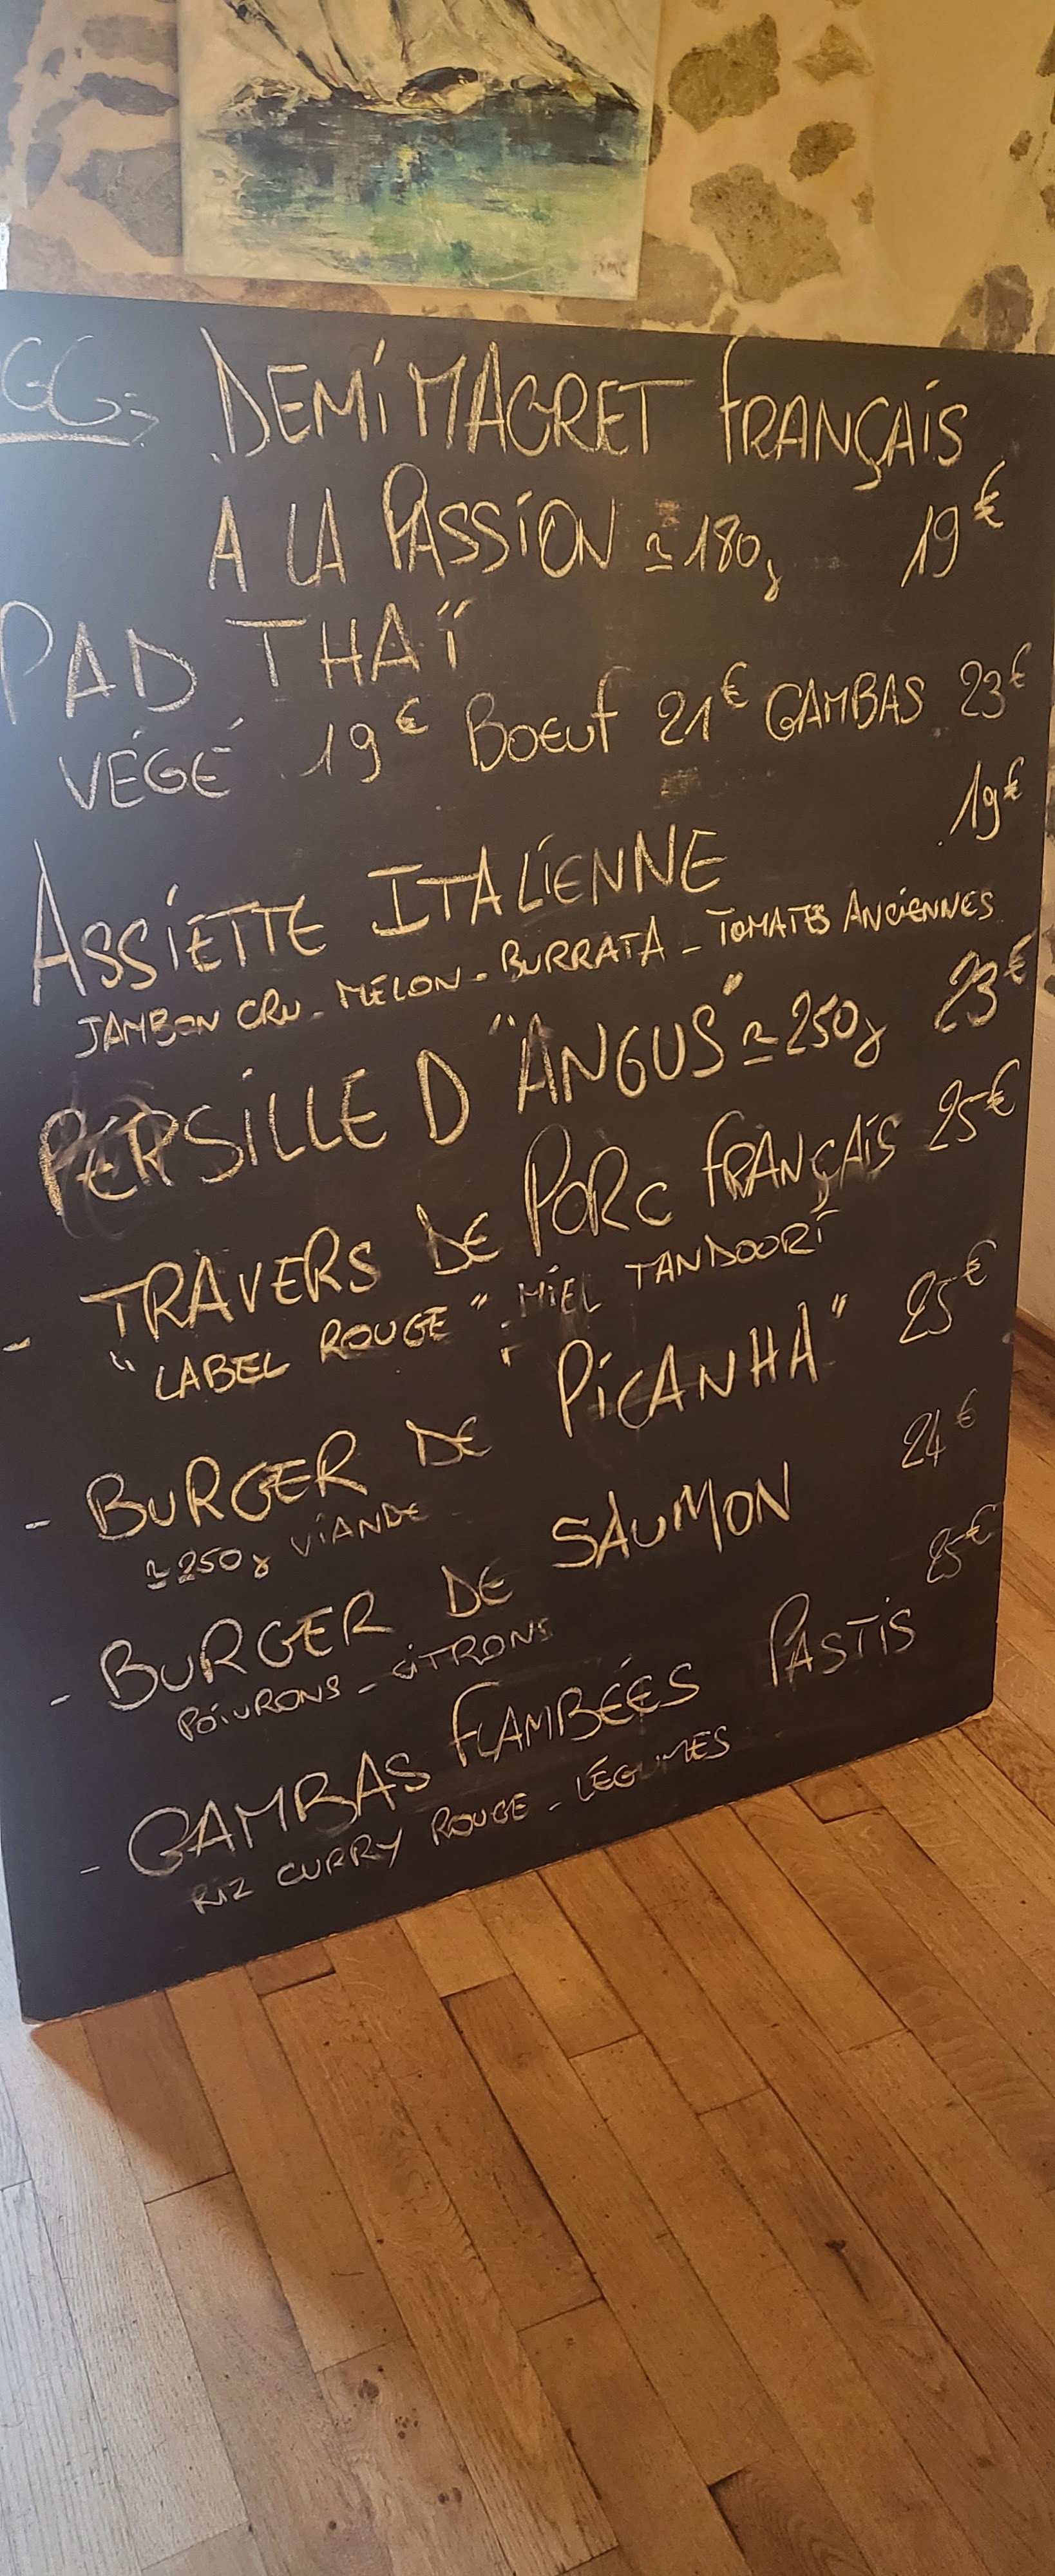 GG⇒ DEMI MAGRET FRANÇAIS
A LA PASSION ≃ 180g 19€
PAD THAÏ
VÉGÉ 19€ BOEUF 21€ GAMBAS 23€
ASSIETTE ITALIENNE 19€
JAMBON CRU - MELON - BURRATA - TOMATES ANCIENNES
PERSILLE D "ANGUS" ≃ 250g 23€
- TRAVERS DE PORC FRANÇAIS 25€
"LABEL ROUGE" : MIEL TANDOORI
- BURGER DE "PICANHA" 25€
≃ 250g VIANDE
- BURGER DE SAUMON 24€
POIVRONS - CITRONS
- GAMBAS FLAMBÉES PASTIS 25€
RIZ CURRY ROUGE - LÉGUMES